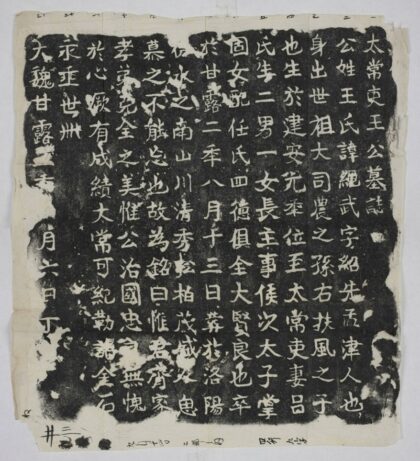 太常吏王公墓誌
公姓王氏諱繩武字紹先孟津人也
身出世祖大司農之孫右扶風之子
也生於建安元年位至太常吏妻呂
氏生二男一女長主事侯次太子掌
固女配任氏四德俱全大賢良也卒
於甘露二年八月十三日葬於洛陽
水之南山川清秀松柏茂盛人思
慕之不能忘也故為銘曰惟君齊家
孝克全之美惟公治國忠無愧
於心厥有成績大常可紀勒諸金石
永垂世
大魏甘露年月六日丁